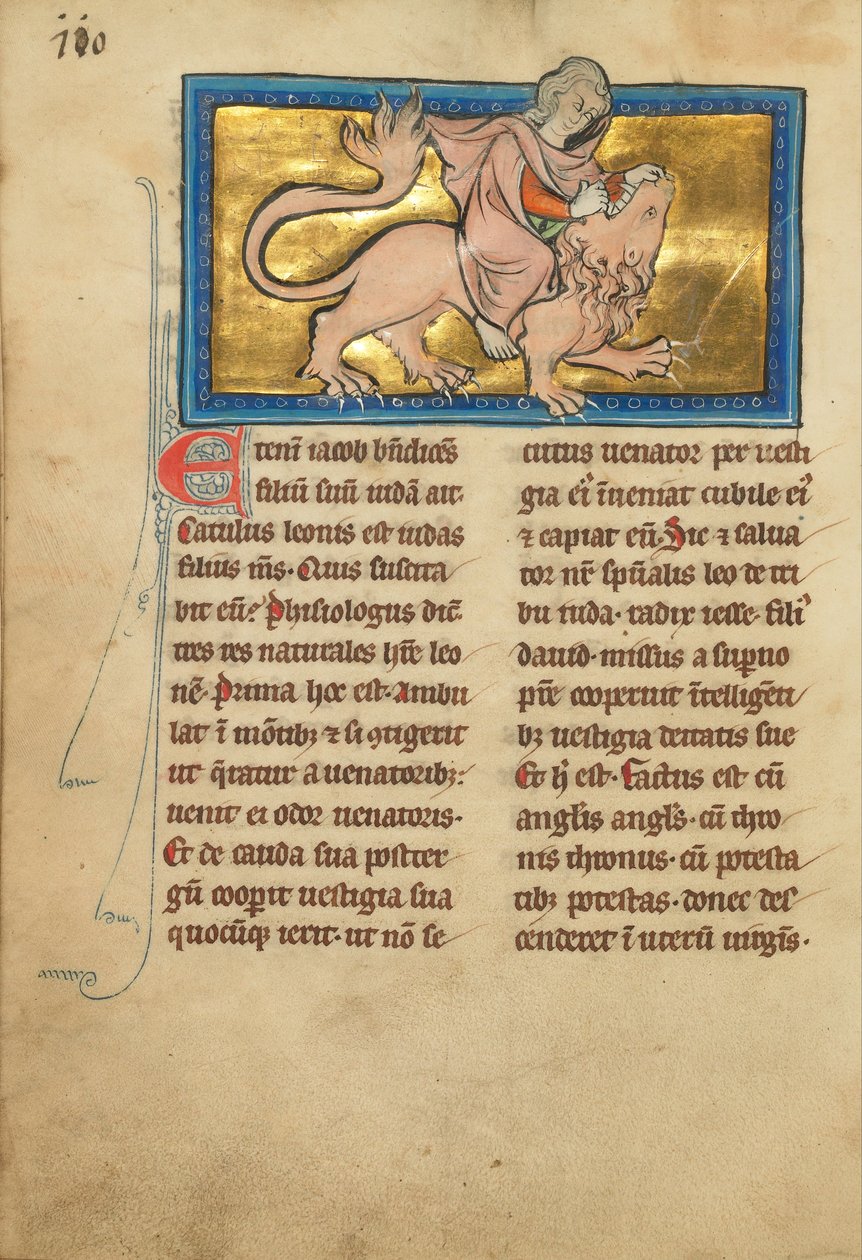 Eteni iacob bn̄dicēs
filiū suū iudā ait·
Catulus leonis est iudas
filius m̄s· Quis suscita
bit eū? Phisiologus dic̄
tres res naturales hr̄e leo
nē· Prima hec est· Ambu
lat ī mōtibꝫ ⁊ si ꝯtigerit
ut q̄ratur a uenatoribꝫ:
uenit ei odor uenatoris·
Et de cauda sua poster
gū coopit uestigia sua
quocūqꝫ ierit· ut nō se
cutus uenator per uesti
gia eiꝰ īueniat cubile eiꝰ
⁊ capiat eū· Sic ⁊ salua
tor nr̄ spūalis leo de tri
bu iuda· radix iesse filiꝰ
dauid· missus a supno
pr̄e cooperuit ītelligēti
bꝫ uestigia deitatis sue
Et h̄ est· Factus est cū
anglis angls· cū thro
nis thronus· cū potesta
tibꝫ potestas· donec des
cenderet ī uterū uirgīs·